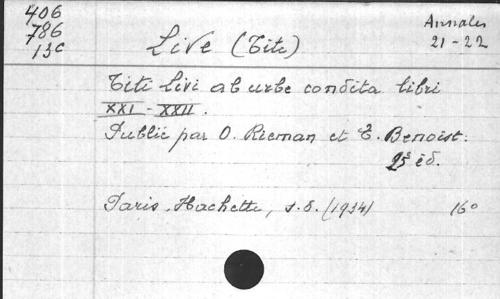 406
786
13c
Annales
21-22
Live (Tite)
Titi Livi ab urbe condita libri
XXI - XXII.
Publié par O. Rieman et E. Benoist.
25e éd.
Paris, Hachette, s.d. (1934) 16°